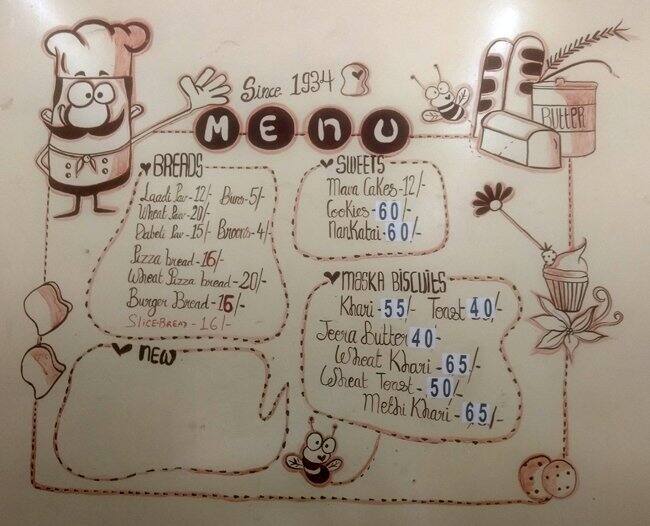 Since 1934
MENU
BREADS
Laadi Pav-12/- Buns-5/-
Wheat Pav-20/-
Dabeli Pav-15/- Broons-4/-
Pizza bread-16/-
Wheat Pizza bread-20/-
Burger Bread-16/-
SLICE-BREAD-16/-
NEW
SWEETS
Mava Cakes-12/-
Cookies-60/-
Nankatai-60/-
MASKA BISCUITS
Khari-55/- Toast 40/-
Jeera Butter 40-
Wheat Khari-65/-
Wheat Toast-50/-
Methi Khari-65/-
BUTTER